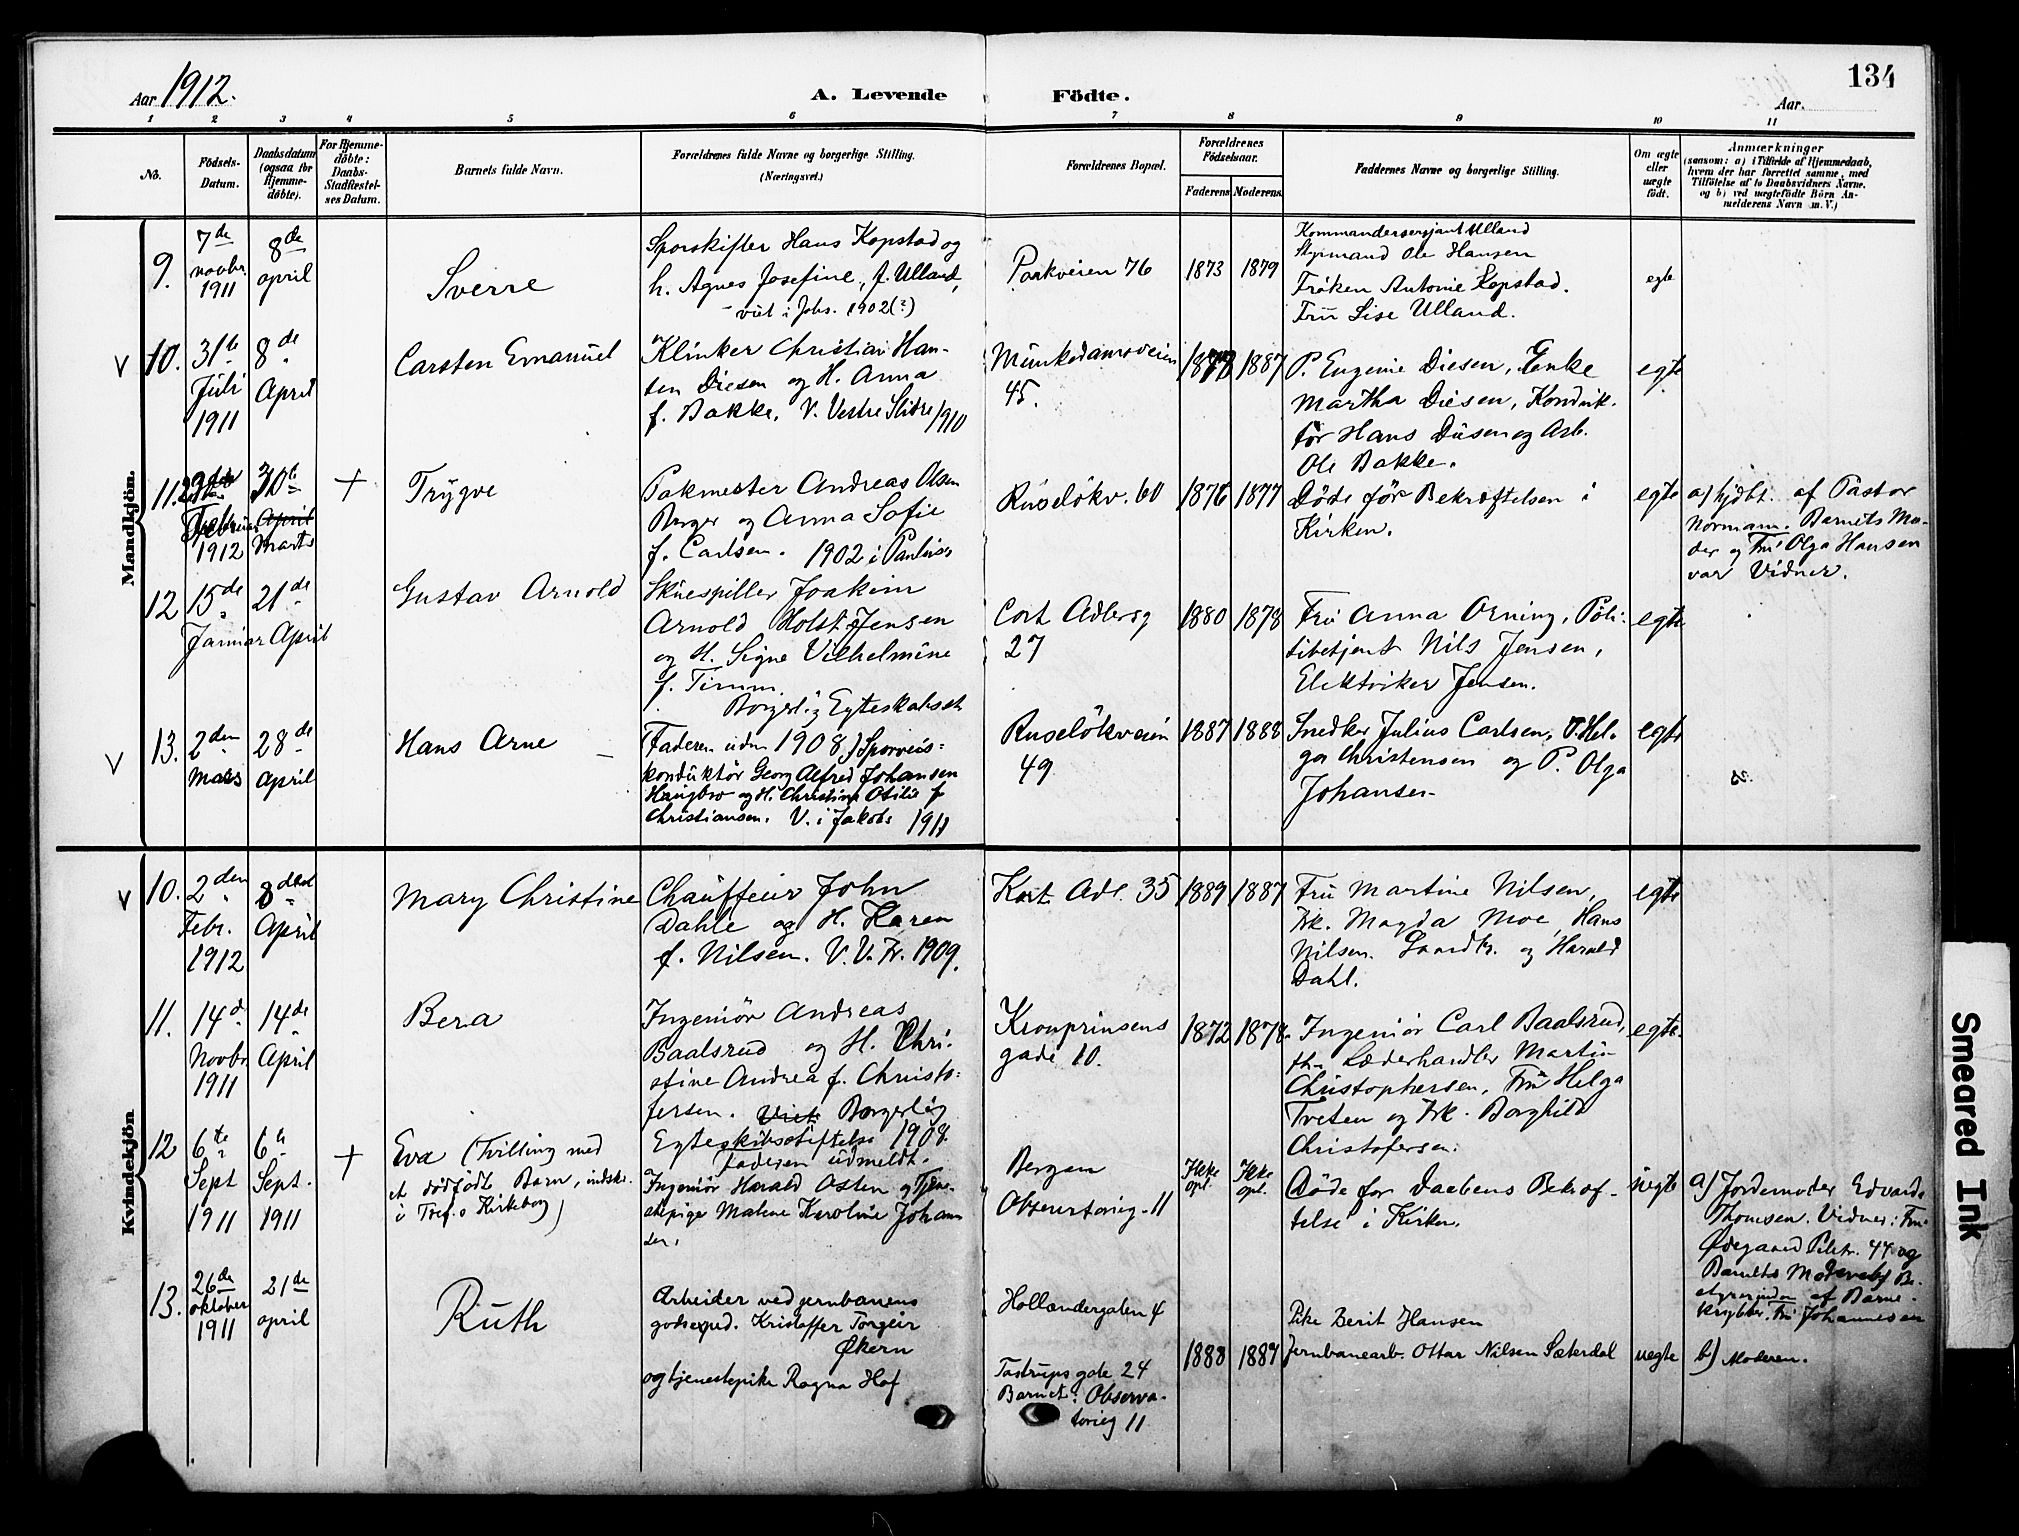 134
Aar 1912.
A. Levende Födte.
Aar.
1 2 3 4 5 6 7 8 9 10 11
No.
Födsels-
Datum.
Daabsdatum
(ogsaa for
Hjemme-
döbte).
For Hjemme-
döbte:
Daabs-
Stadfæstel-
ses Datum.
Barnets fulde Navn.
Forældrenes fulde Navne og borgerlige Stilling.
(Næringsvei.)
Forældrenes Bopæl.
Forældrenes
Födselsaar.
Faderens Moderens
Faddernes Navne og borgerlige Stilling.
Om ægte
eller
uægte
födt.
Anmærkninger
(saasom: a) i Tilfælde af Hjemmedaab,
hvem der har forrettet samme, med
Tilföielse af to Daabsvidners Navne.
og b) ved uægtefödte Börn An-
melderens Navn m. V.)
Mandkjön.
9.
7de
novbr.
1911
8de
april
Sverre
Sporskifter Hans Kopstad og
h. Agnes Josefine, f. Ulland,
- viet i Johs. 1902(?)
Parkveien 76
1873 1879
Kommandersersjant Ulland
Styrmand Ole Hansen
Frøken Antonie Kopstad.
Fru Lise Ulland.
egte
V 10.
31te
Juli
1911
8de
April
Carsten Emanuel
Klinker Christian Han-
sen Diesen og H. Anna
f. Bakke. V. Vestre Slidre 1910
Munkedamsveien
45.
1887
P. Eugenie Diesen, Enke
Martha Diesen, Konduk-
tør Hans Diesen og Arb.
Ole Bakke.
egte
11.
Febr.
1912
30te
April
Marts
+
Trygve
Pakmester Andreas Olsen
Berger og Anna Sofie
f. Carlsen. 1902 i Paulus
Ruseløkv. 60
1876 1877
Døde før Bekræftelsen i
Kirken.
egte
a) hjdbt. af Pastor
Normann. Barnets Mo-
der og Fru Olga Hansen
var Vidner.
12
15de
Januar
21de
April
Gustav Arnold
Skuespiller Joakim
Arnold Holst Jensen
og H. Signe Vilhelmine
f. Timm.
Borgerlig Egteskab
Cort Adlersg
27
1880 1878
Fru Anna Orning, Poli-
tibetjent Nils Jensen,
Elektriker Jensen.
egte
V 13.
2den
Mars
28de
April
Hans Arne
(Faderen udm 1908) Sporveis-
konduktør Georg Alfred Johansen
Haugbro og H. Christine Otilie f
Christiansen. V. i Jakobs 1911
Ruseløkveien
49
1887 1888
Snedker Julius Carlsen, P. Hel-
ga Christensen og P. Olga
Johansen
egte
Kvindekjön
V 10.
2den
Febr.
1912
8de
April
Mary Christine
Chauffeur John
Dahle og H. Karen
f. Nilsen. V. V. Fr. 1909.
Kort Adl. 35
1889 1887
Fru Martine Nilsen,
Frk. Magda Moe, Hans
Nilsen og Harald
Dahl.
egte
11.
14d
Novbr.
1911
14de
April
Bera
Ingeniør Andreas
Baalsrud og H. Chri-
stine Andrea f. Christo-
fersen. Viet Borgerlig
Egteskabsstiftelse 1908.
faderen udmeldt.
Kronprinsens
gade 10.
1872 1878
Ingeniør Carl Baalsrud,
Læderhandler Martin
Christophersen, Fru Helga
Tveten og Frk. Borghild
Christofersen.
egte.
12
6te
Sept
1911
6te
Sept.
1911
+
Eva (Tvilling med
et dødfødt Barn, indskr.
i Tref.s Kirkebog)
Ingeniør Harald Osten og Tjene-
stepige Malene Karoline Johan-
sen.
Bergen
Observatorieg. 11
Ikke
opl.
Ikke
opl.
Døde før Daabens Bekræf-
telse i Kirken.
uegte
a) Jordemoder Edvarda
Thomsen. Vidner: Fru
Ødegaard Pilestr. 44 og
Barnets Moder
af Barne-
krybben, Fru Johannesen
13.
26de
oktober
1911
21de
april
Ruth
Arbeider ved jernbanens
godsexped. Kristoffer Torgeir
Økern
og tjenestepike Ragna Hof
Hollændergaten 4
Tostrupsgade 24
Barnet: Observa-
torieg 11
1888 1889
Pike Berit Hansen
Jernbanearb. Ottar Nilsen Sæterdal
uegte
b) Moderen.
Smeared Ink